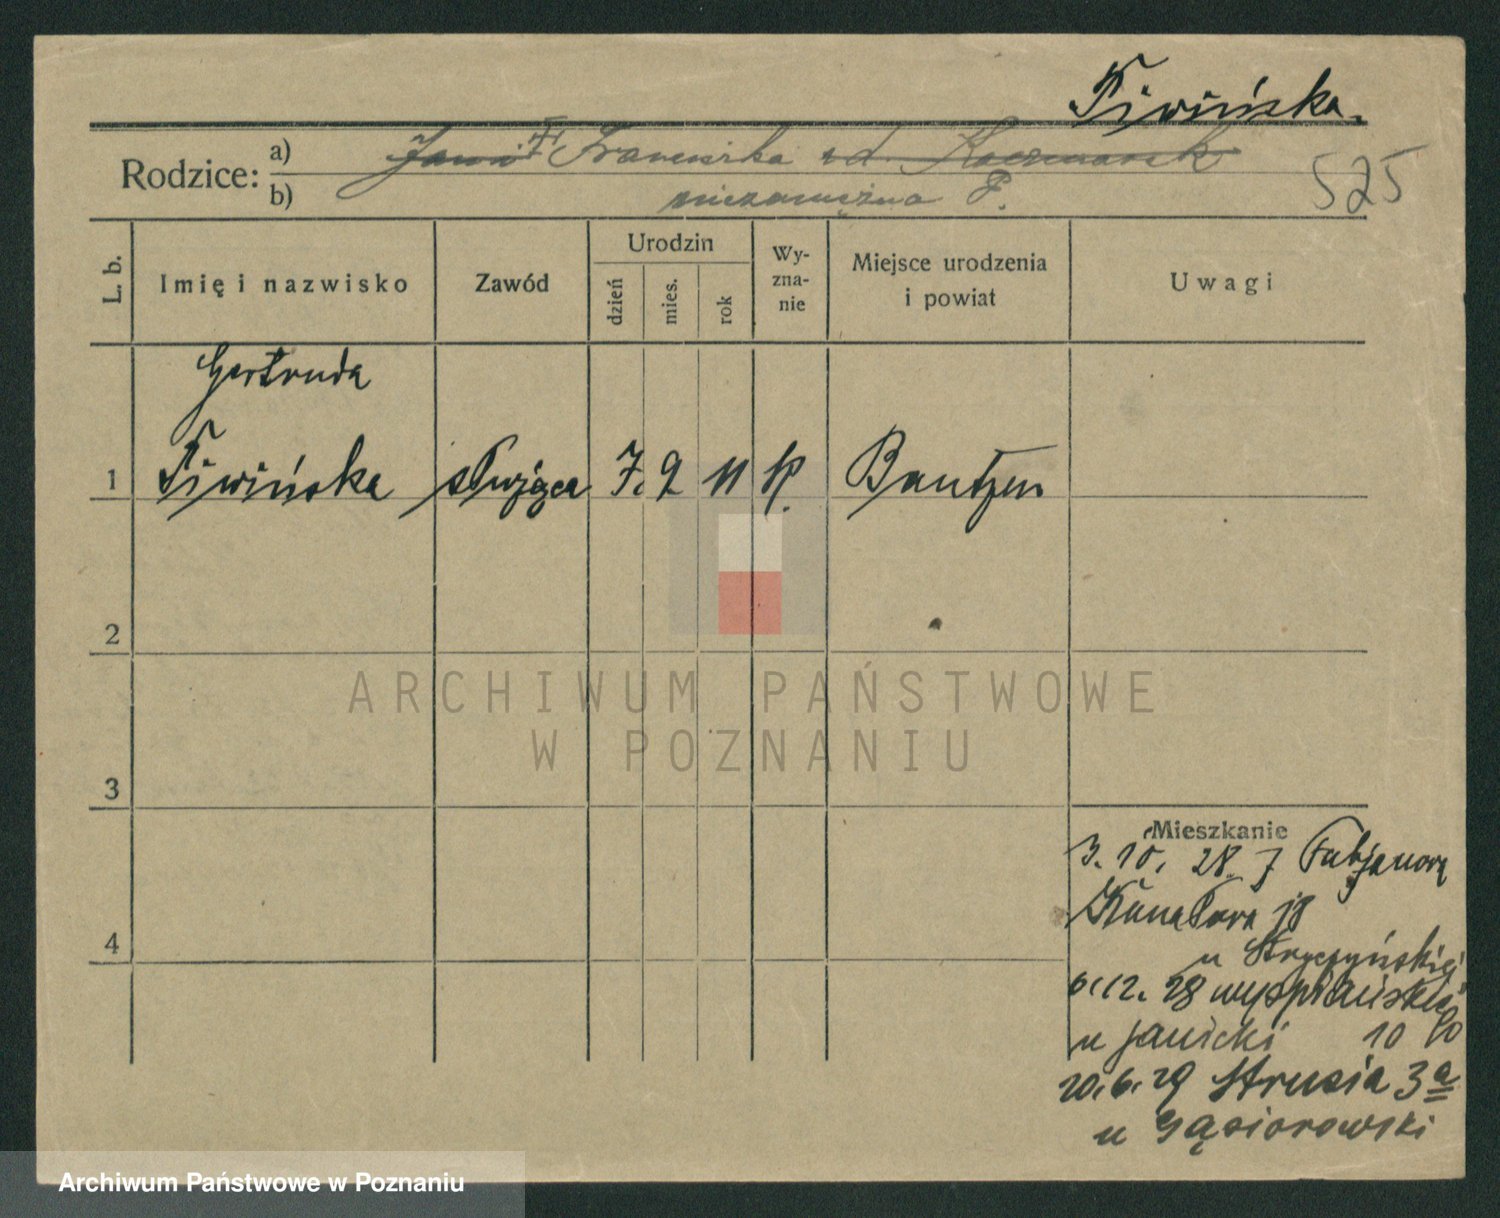 Piwińska.
Rodzice: a) Jan Franciszka zd. Kaczmarek
b) niezamężna P.
525
L. b. Imię i nazwisko Zawód Urodzin dzień mies. rok Wyznanie Miejsce urodzenia i powiat Uwagi
Gertruda
1 Piwińska służąca 7. 9 11 K. Bautzen
2
3
4
Mieszkanie
3. 10. 28. z
18
u Stryczyńskiej
6.12. 28 Wyspiańskiego
u Janicki 10
20.6.29 Strusia 3a
u Gąsiorowski
ARCHIWUM PAŃSTWOWE
W POZNANIU
Archiwum Państwowe w Poznaniu